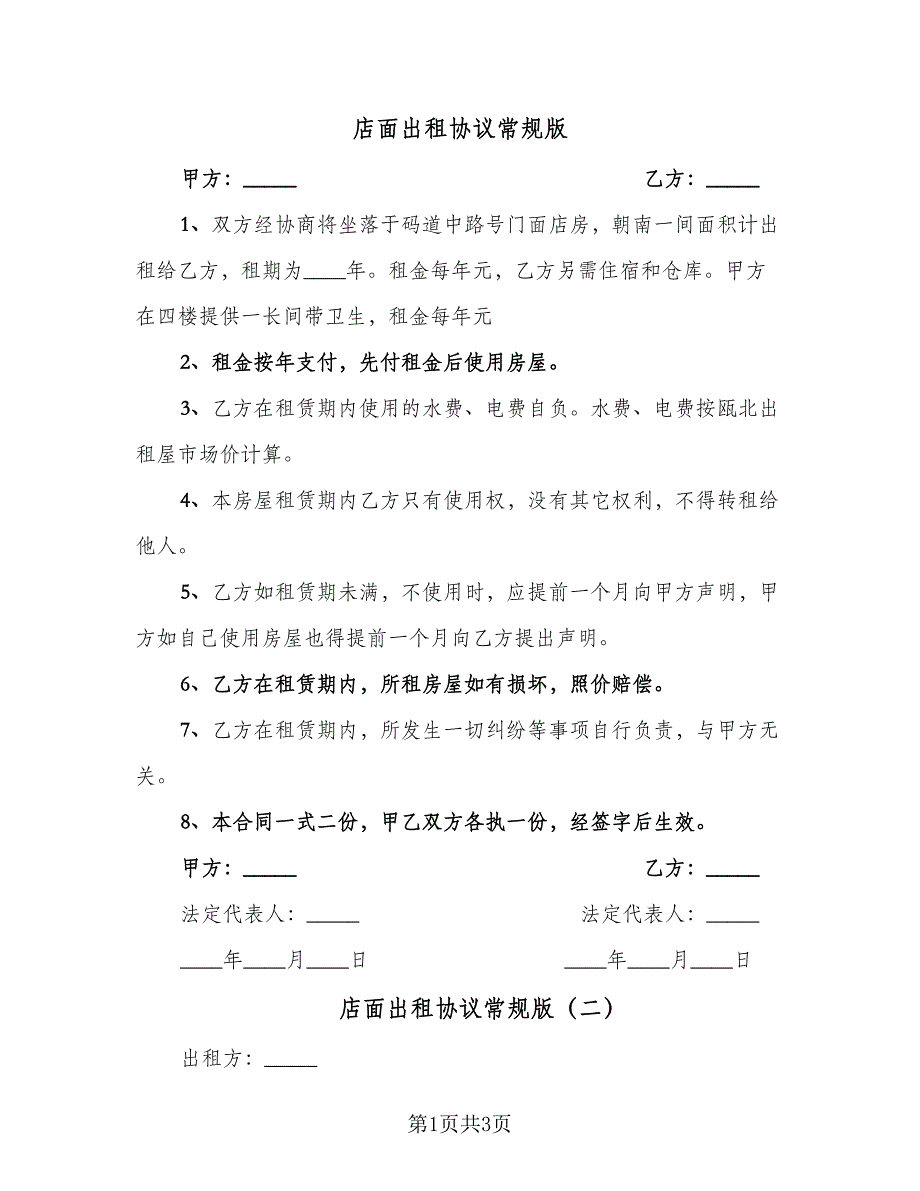 店面出租协议常规版
甲方：_____ 乙方：_____
1、双方经协商将坐落于码道中路号门面店房，朝南一间面积计出
租给乙方，租期为____年。租金每年元，乙方另需住宿和仓库。甲方
在四楼提供一长间带卫生，租金每年元
2、租金按年支付，先付租金后使用房屋。
3、乙方在租赁期内使用的水费、电费自负。水费、电费按瓯北出
租屋市场价计算。
4、本房屋租赁期内乙方只有使用权，没有其它权利，不得转租给
他人。
5、乙方如租赁期未满，不使用时，应提前一个月向甲方声明，甲
方如自己使用房屋也得提前一个月向乙方提出声明。
6、乙方在租赁期内，所租房屋如有损坏，照价赔偿。
7、乙方在租赁期内，所发生一切纠纷等事项自行负责，与甲方无
关。
8、本合同一式二份，甲乙双方各执一份，经签字后生效。
甲方：_____ 乙方：_____
法定代表人：_____ 法定代表人：_____
____年____月____日 ____年____月____日
店面出租协议常规版（二）
出租方：_____
第1页共3页